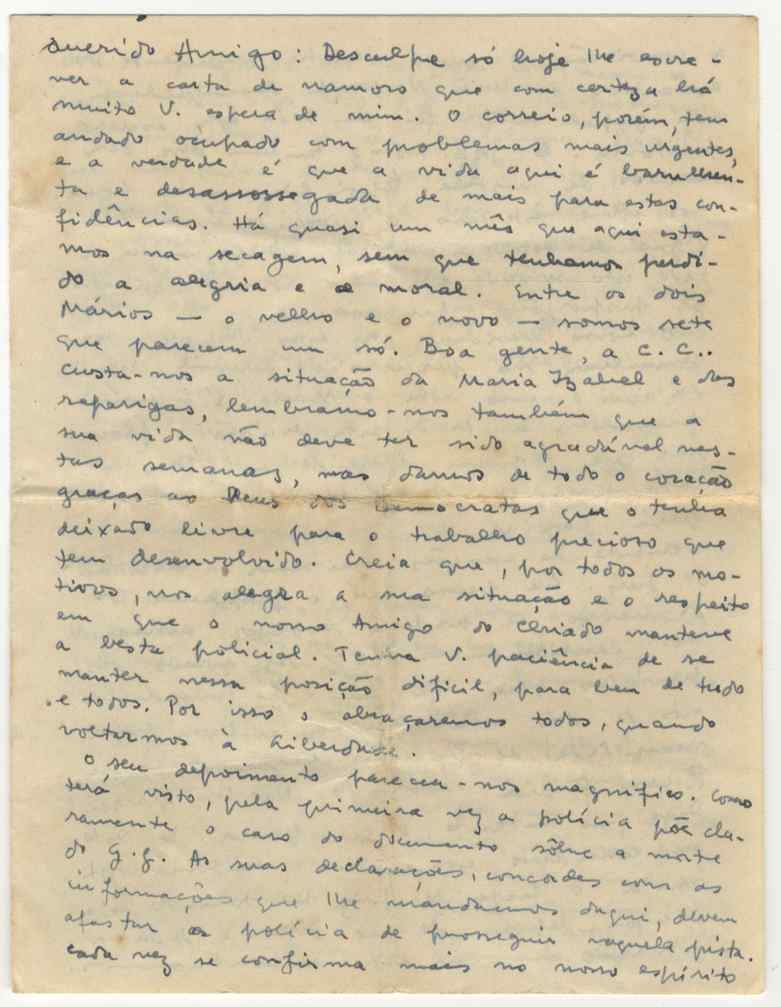 Querido Amigo: Desculpe só hoje lhe escre-
ver a carta de namoro que com certeza há
muito V. espera de mim. O correio, porém, tem
andado ocupado com problemas mais urgentes,
e a verdade é que a vida aqui é barulhen-
ta e desassossegada de mais para estas con-
fidências. Há quasi um mês que aqui esta-
mos na secagem, sem que tenhamos perdi-
do a alegria e a moral. Entre os dois
Mários — o velho e o novo — somos sete
que parecem um só. Boa gente, a C. C..
Custa-nos a situação da Maria Izabel e das
raparigas, lembramo-nos também que a
sua vida não deve ter sido agradável nes-
tas semanas, mas damos de todo o coração
graças ao Deus dos Democratas que o tenha
deixado livre para o trabalho precioso que
tem desenvolvido. Creia que, por todos os mo-
tivos, nos alegra a sua situação e o respeito
em que o nosso Amigo do Criado manteve
a besta policial. Tenha V. paciência de se
manter nessa posição difícil, para bem de tudo
e todos. Por isso o abraçaremos todos, quando
voltarmos à Liberdade.
O seu depoimento pareceu-nos magnífico. Como
terá visto, pela primeira vez a polícia põe cla-
ramente o caso do documento sôbre a morte
do G.G. As suas declarações, concordes com as
informações que lhe mandamos daqui, devem
afastar a polícia de prosseguir naquela pista.
Cada vez se confirma mais no nosso espírito